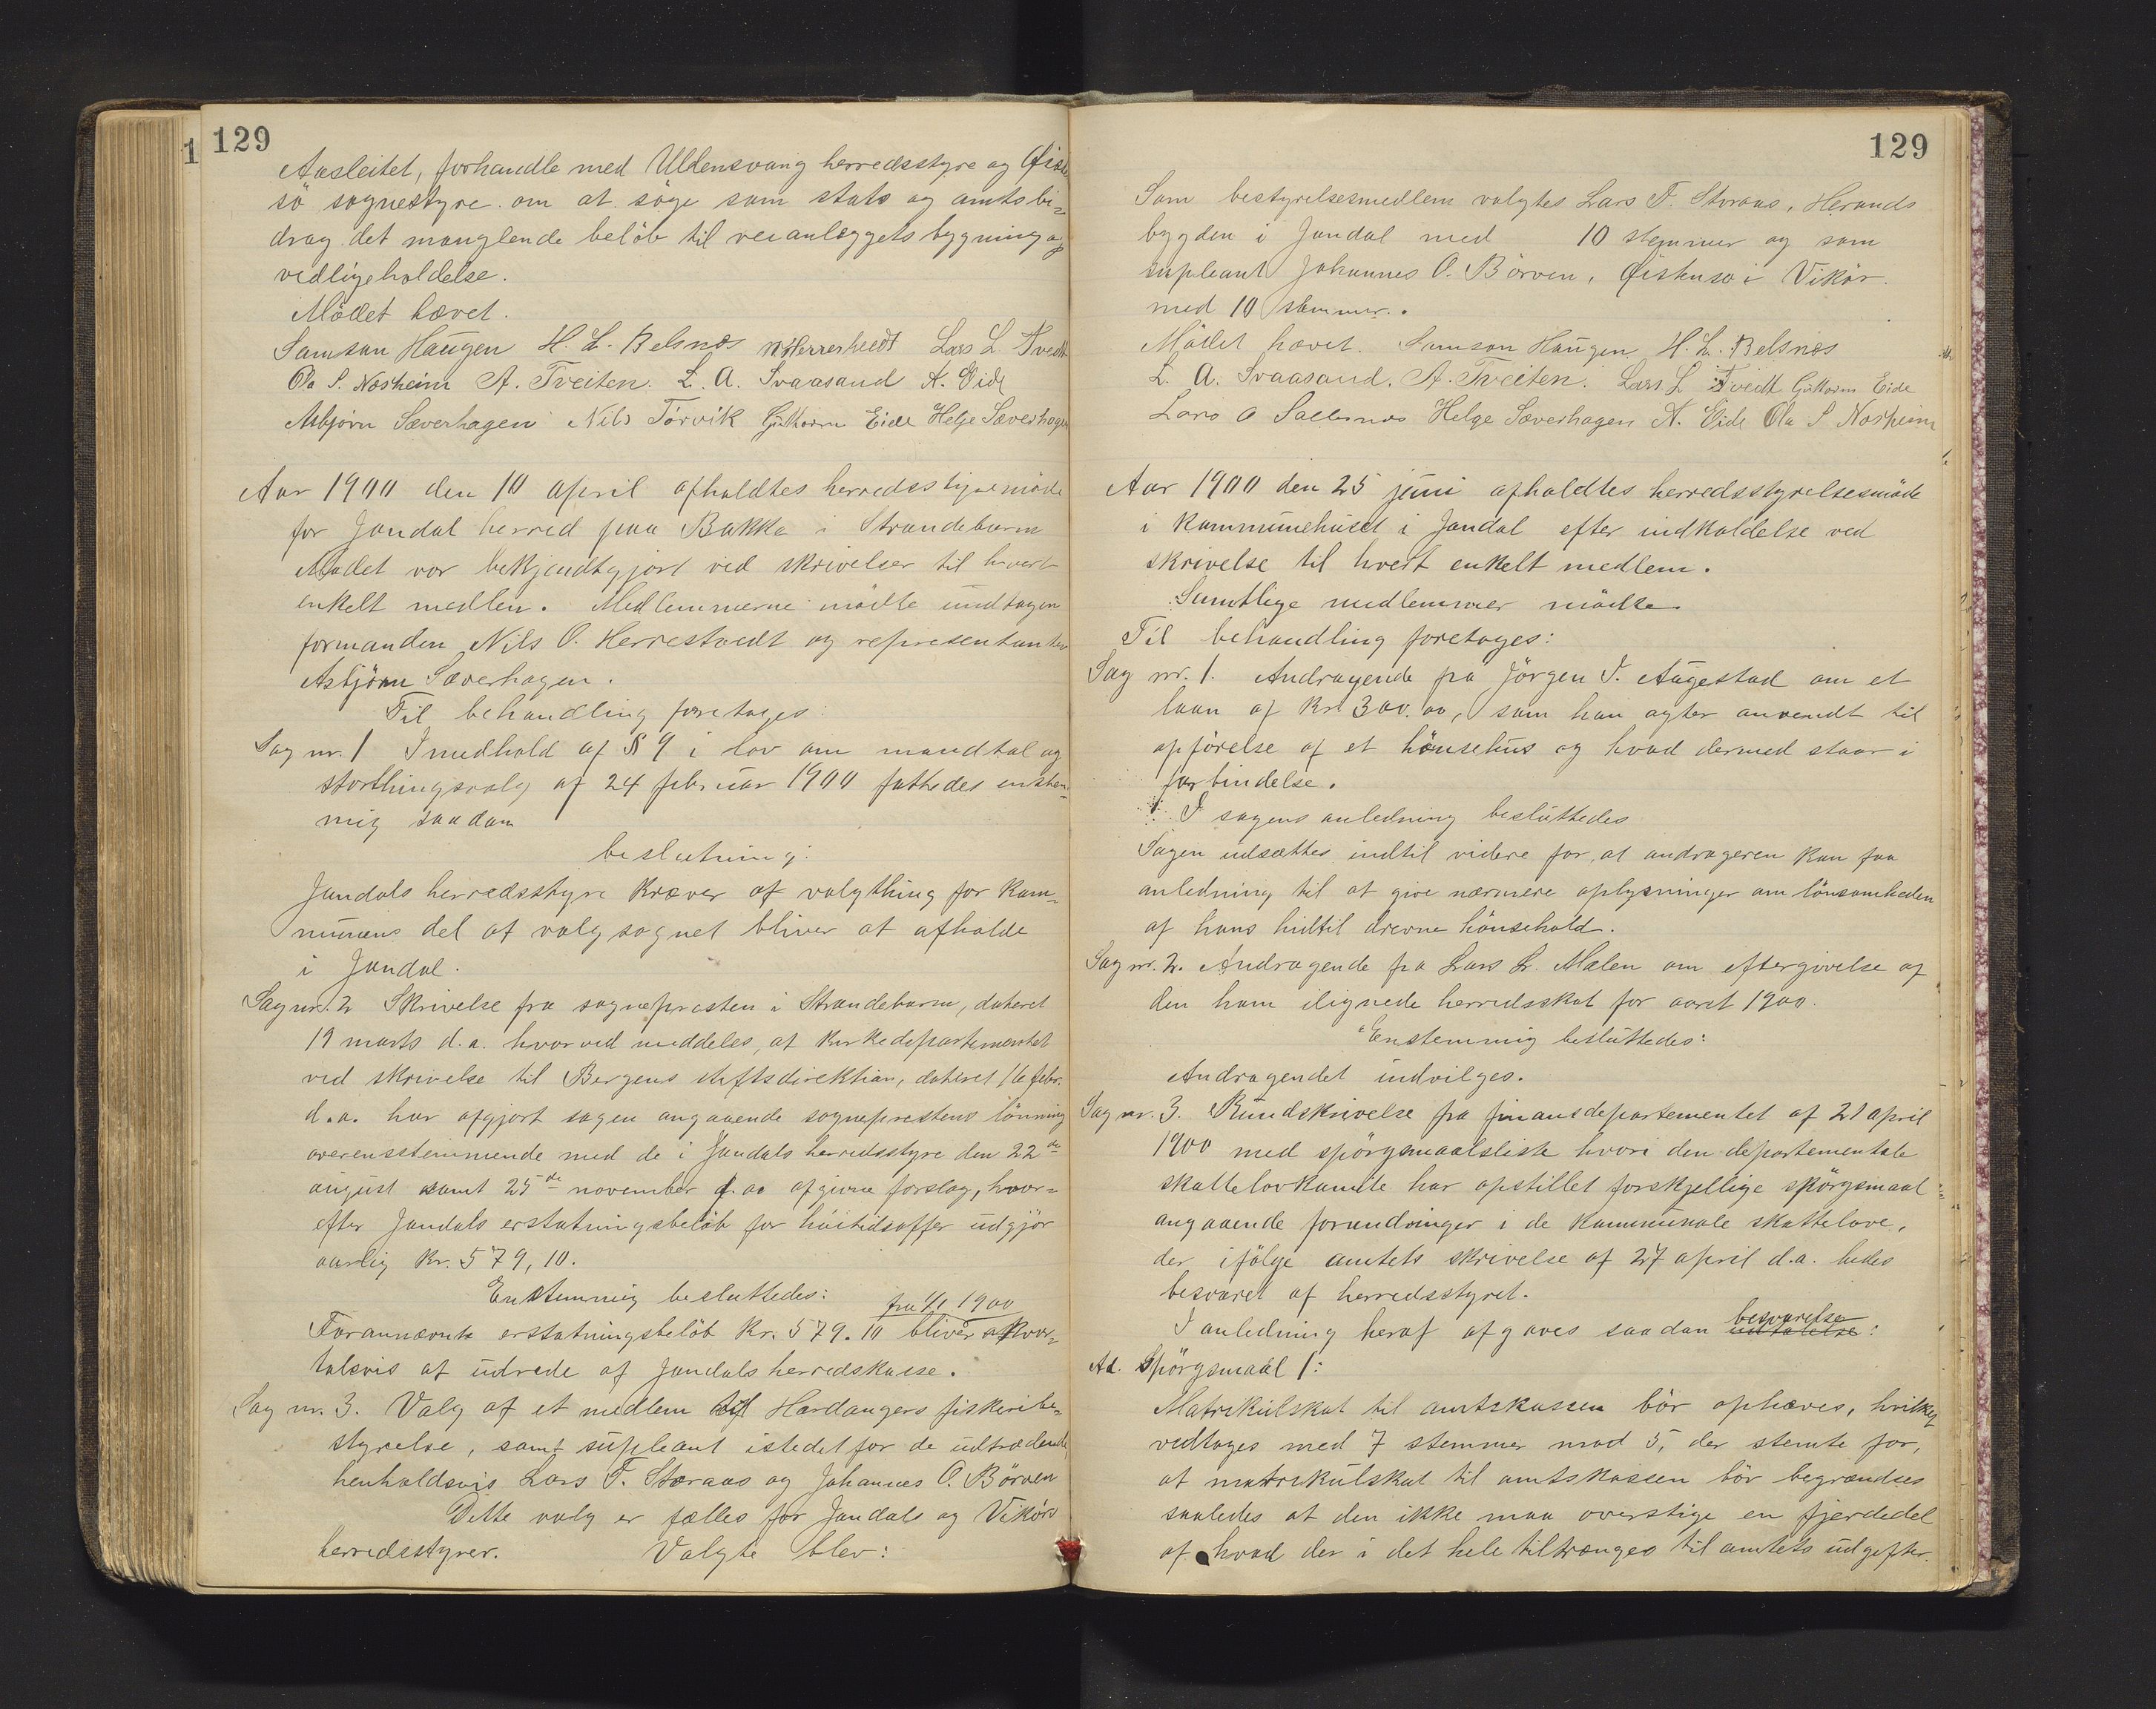 129
1
Aasleitet, forhandle med Ullensvang herredsstyre og Øistu
sö sognestyre om at söge som stats og amtsbi=
drag det manglende belöb til veianlæggets bygning og
vedligeholdelse.
Mödet hævet.
Samson Haugen H. L. Belsnes N Herrestvedt Lars L Tvedt
Ola S. Nesheim A. Tveiten. L. A. Svaasand A. Eide
Asbjørn Sæverhagen Nils Torvik Guttorm Eide Helge Sæverhagen
Aar 1900 den 10 april afholdtes herredsstyremöde
for Jondal herred paa Bakke i Strandebarm
Mödet var bekjendtgjort ved skrivelser til hvert
enkelt medlem. Medlemmerne mödte undtagen
formanden Nils O. Herrestvedt og representanten
Asbjörn Sæverhagen.
Til behandling foretoges:
Sag nr. 1 I medhold af § 9 i lov om mandtal og
storthingsvalg af 24 februar 1900 fattedes enstem=
mig saadan
beslutning:
Jondals herredsstyre kræver at valgthing for kom=
munens del af valgsognet bliver at afholde
i Jondal.
Sag nr. 2 Skrivelse fra sognepresten i Strandebarm, dateret
19 marts d.a. hvorved meddeles, at kirkedepartementet
ved skrivelse til Bergens stiftsdirektion, dateret 16 febr.
d.a. har afgjort sagen angaaende sogneprestens lönning
overensstemmende med de i Jondals herredsstyre den 22de
august samt 25de november f.aa afgivne forslag, hvor=
efter Jondals erstatningsbelöb for höitidsoffer udgjör
aarlig kr. 579,10.
Enstemmig besluttedes:
fra 1/1 1900
Forannævnte erstatningsbelöb kr. 579.10 bliver at kvar=
talsvis at udrede af Jondals herredskasse.
Sag nr. 3. Valg af et medlem til Hardangers fiskeribe=
styrelse, samt supleant istedetfor de udtrædende,
henholdsvis Lars T. Storaas og Johannes O. Börven
Dette valg er fælles for Jondals og Vikörs
herredsstyrer. Valgte blev:
129
Som bestyrelsesmedlem valgtes Lars T. Storaas, Herands
bygden i Jondal med 10 stemmer og som
supleant Johannes O. Börven, Øistusö i Vikör
med 10 stemmer.
Mödet hævet. Samson Haugen H. L. Belsnes
L. A. Svaasand. A. Tveiten. Lars L Tvedt Guttorm Eide
Lars O Selsnes Helge Sæverhagen A. Eide Ola S Nesheim
Aar 1900 den 25 juni afholdtes herredsstyrelsesmöde
i kommunehuset i Jondal efter indkaldelse ved
skrivelse til hvert enkelt medlem.
Samtlige medlemmer mödte.
Til behandling foretoges:
Sag nr. 1. Andragende fra Jörgen J. Augestad om et
laan af kr. 300.00, som han agter anvendt til
opförelse af et hönsehus og hvad dermed staar i
forbindelse.
I sagens anledning besluttedes
Sagen udsættes indtil videre for at andrageren kan faa
anledning til at give nærmere oplysninger om lönsomheden
af hans hidtil drevne hönsehold.
Sag nr. 2. Andragende fra Lars L. Mælen om eftergivelse af
den ham ilignede herredsskat for aaret 1900.
Enstemmig besluttedes:
Andragendet indvilges.
Sag nr. 3. Rundskrivelse fra finansdepartementet af 21 april
1900 med spörgsmaalsliste hvori den departementale
skattelovkomite har opstillet forskjellige spörgsmaal
angaaende forandringer i de kommunale skattelove,
der ifölge amtets skrivelse af 27 april d.a. bedes
besvaret af herredsstyret.
besvarelse
I anledning heraf afgaves saadan udtalelse:
Ad. Spörgsmaal 1:
Matrikulskat til amtskassen bör ophæves, hvilket
vedtoges med 7 stemmer mod 5, der stemte for,
at matrikulskat til amtskassen bör begrændses
saaledes at den ikke maa overstige en fjerdedel
af hvad der i det hele tiltrænges til amtets udgifter.